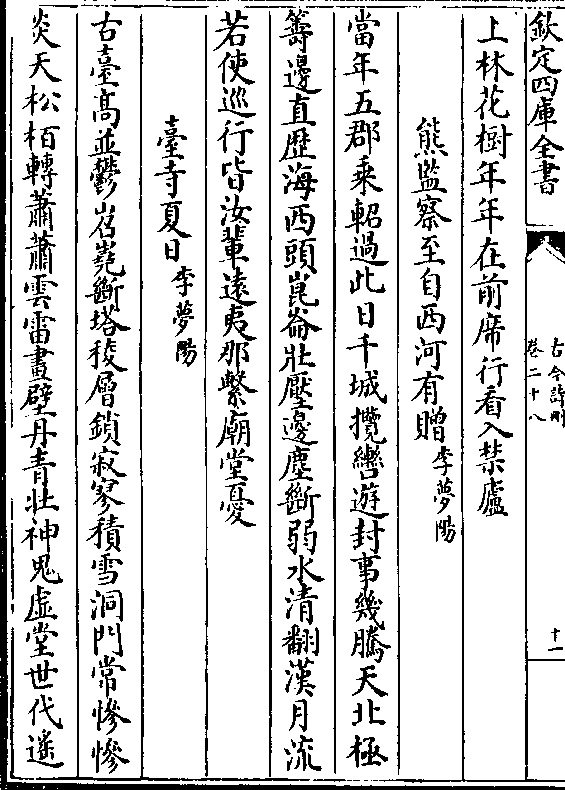 欽定四庫全書
古今詩刪
卷二十八
十一
上林花樹年年在前席行看入禁廬
熊監察至自西河有贈李夢陽
當年五郡乘軺過此日千城攬轡遊封事幾騰天北極
籌邊直歴海西頭崑崙壯壓邊塵斷弱水清翻漢月流
若使巡行皆汝輩遠夷那繫廟堂憂
臺寺夏日李夢陽
古臺髙並鬱岧嶤斷塔稜層鎖寂寥積雪洞門常慘慘
炎天松栢轉蕭蕭雲雷畫壁丹青壮神鬼虚堂世代遙